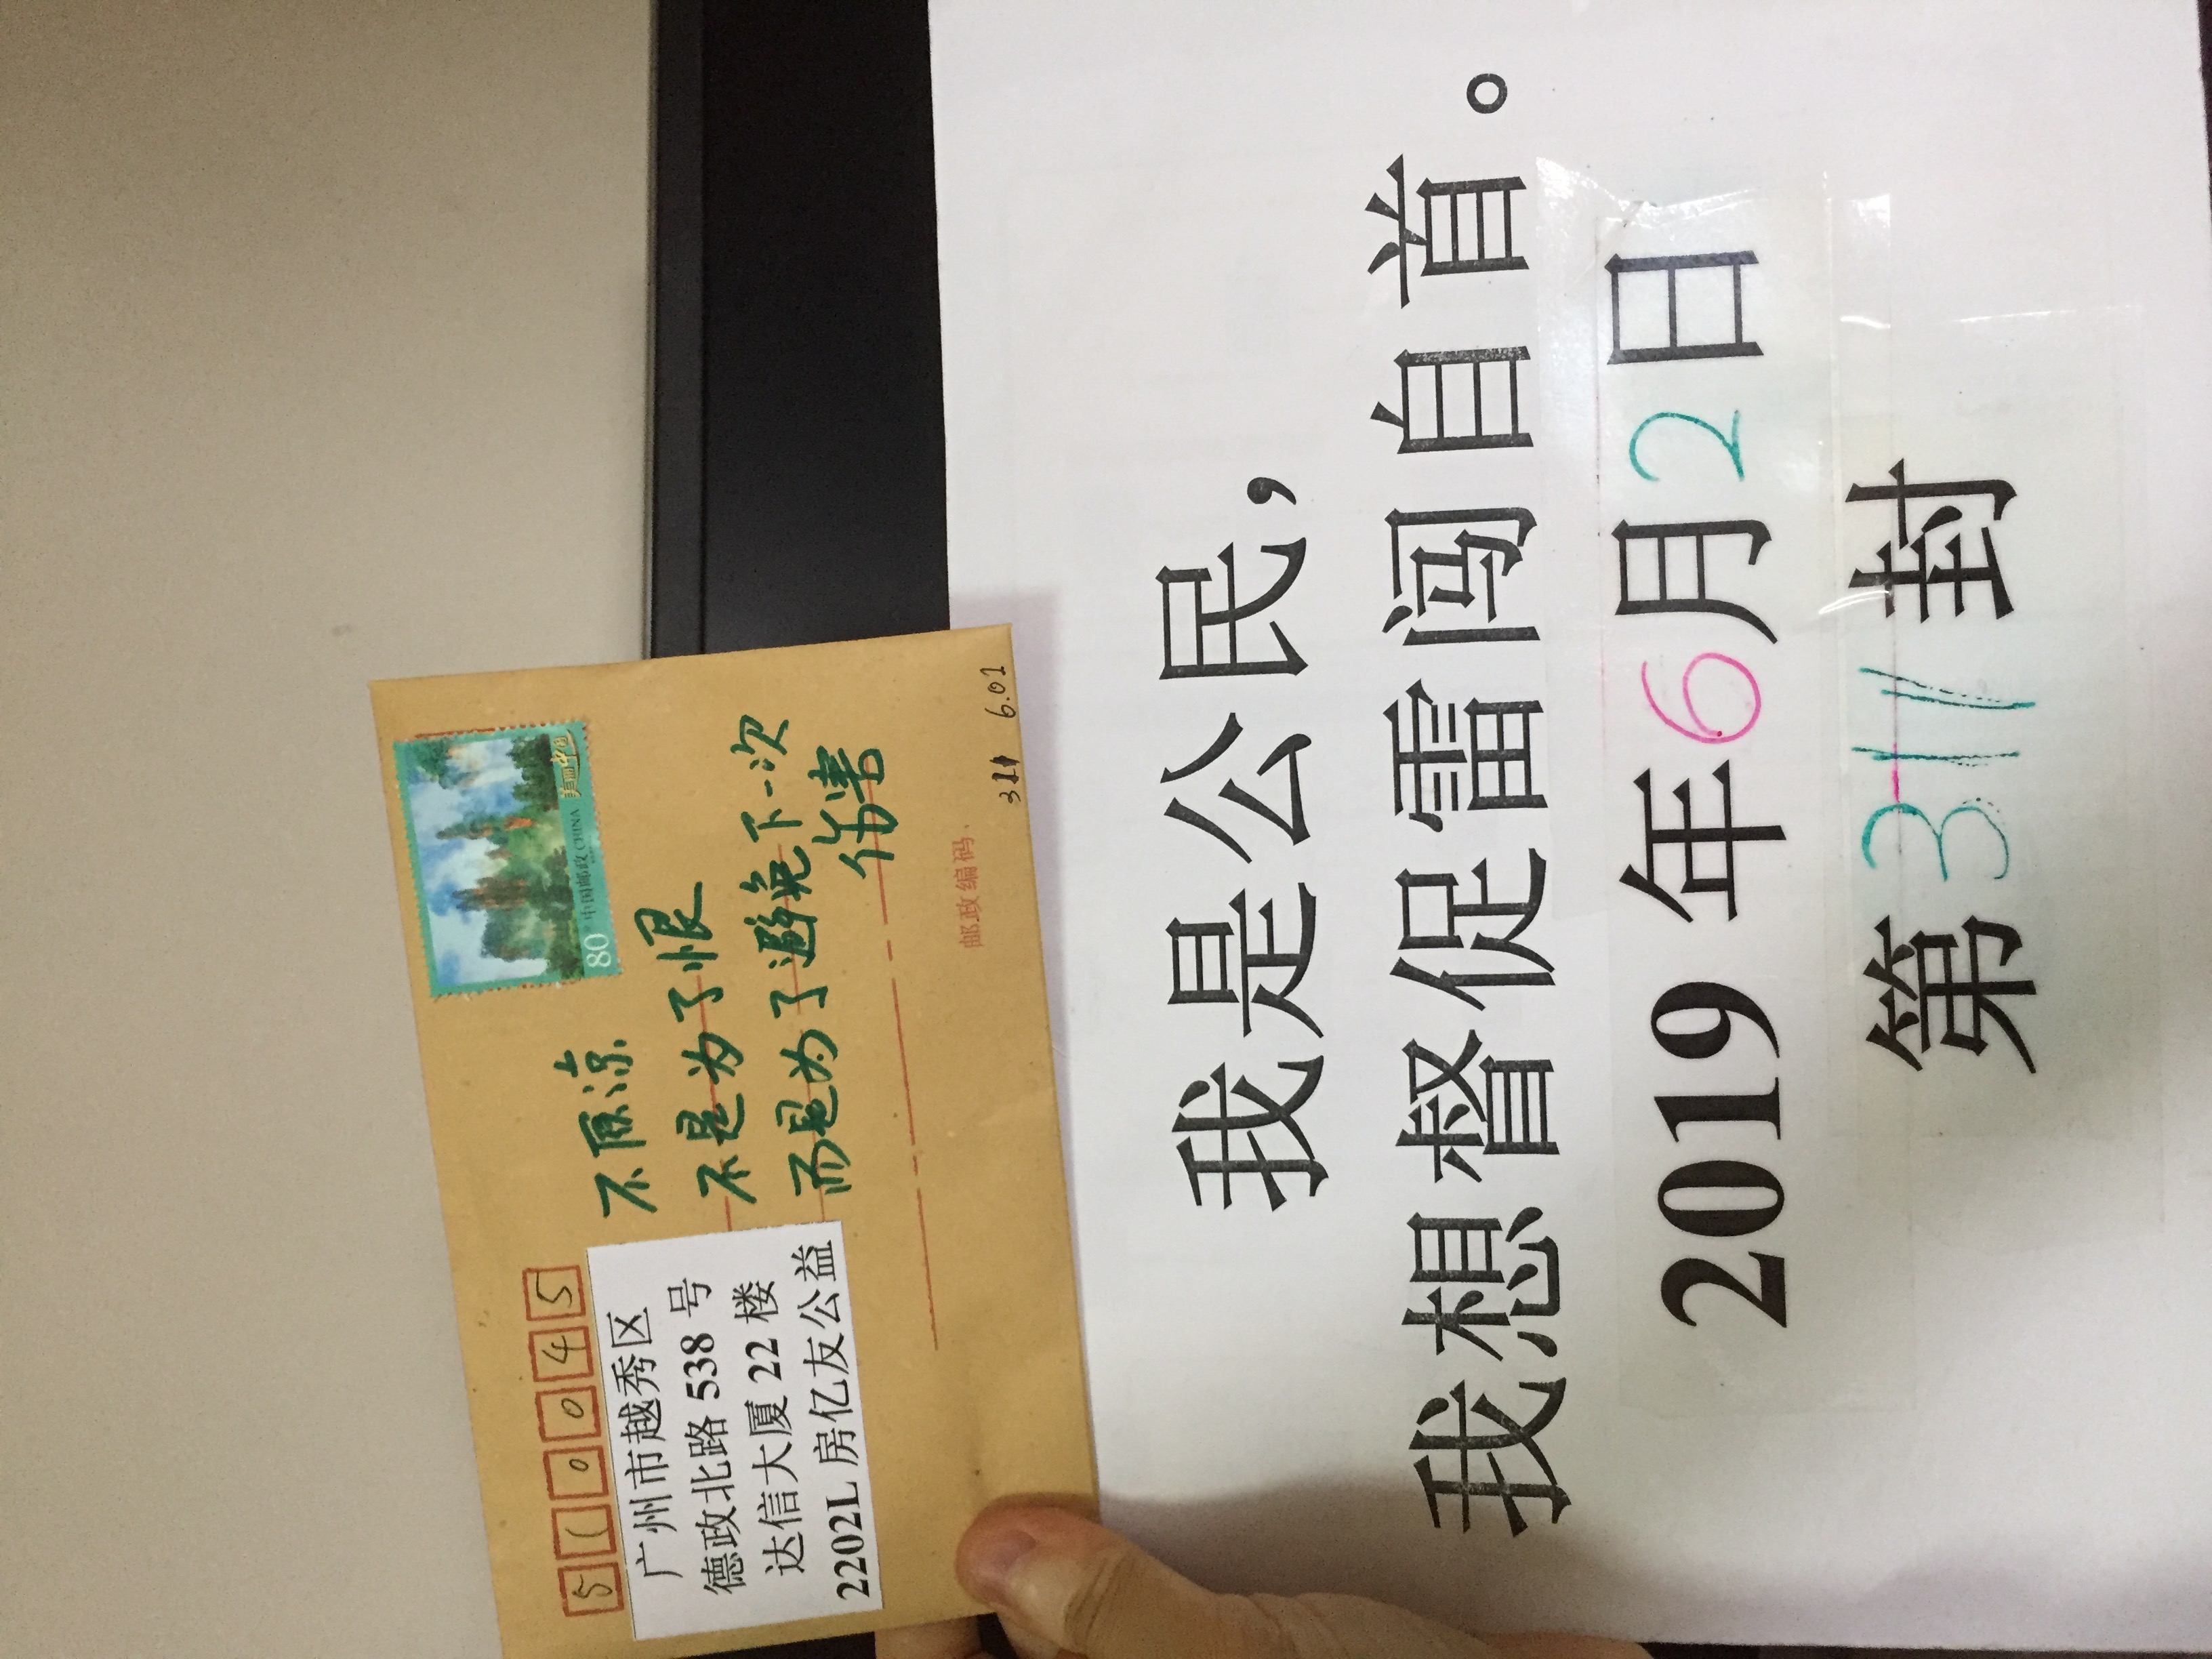 510045
广州市越秀区
德政北路 538 号
达信大厦 22 楼
2202L 房亿友公益
80分 中国邮政 CHINA 美丽中国
不原凉
不是为了恨
而是为了避免下一次
伤害
邮政编码
311 6.01
我是公民，
我想督促雷闯自首。
2019 年6月2日
第311封